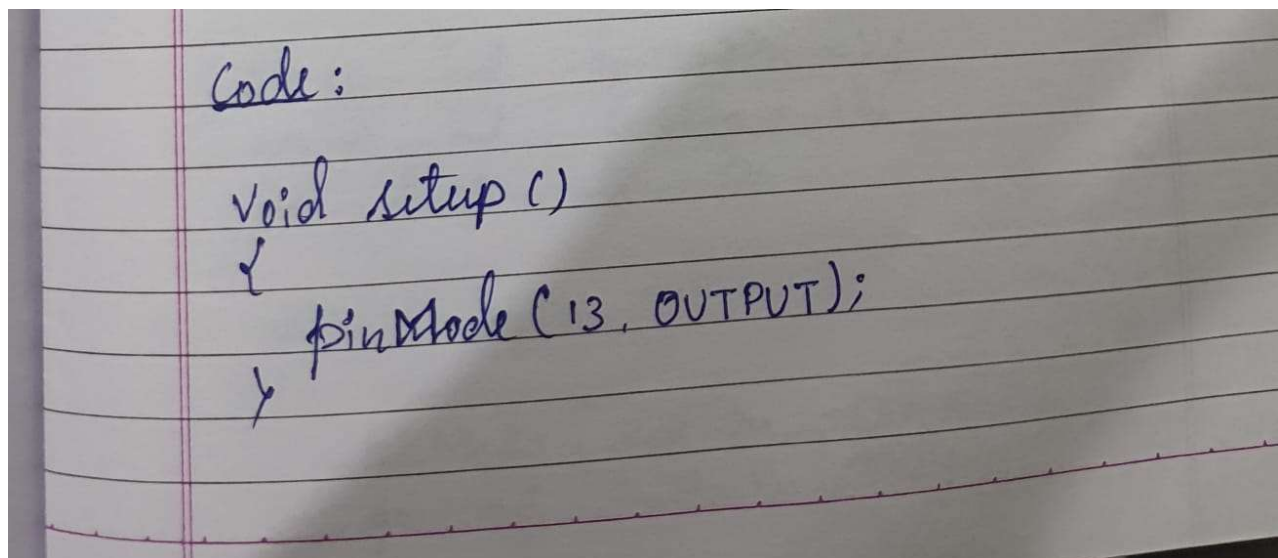 Code:
void setup()
{
pinMode (13, OUTPUT);
}